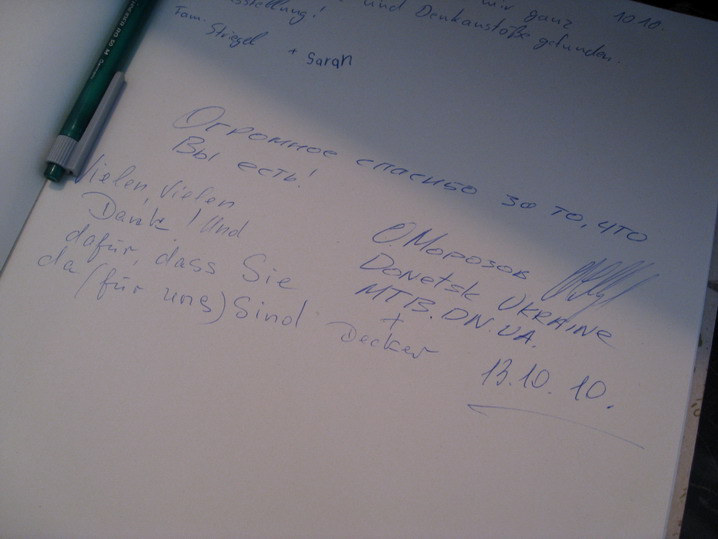 mir ganz 10.10.
und Denkanstöße gefunden.
Fam. Striegel + Sarah
Огромное спасибо за то, что
Вы есть!
Vielen, vielen
Dank! Und
dafür, dass Sie
da (für uns) sind
О Морозов
Donetsk UKRAINE
MTB.DN.UA.
+
Decker
13.10.10.